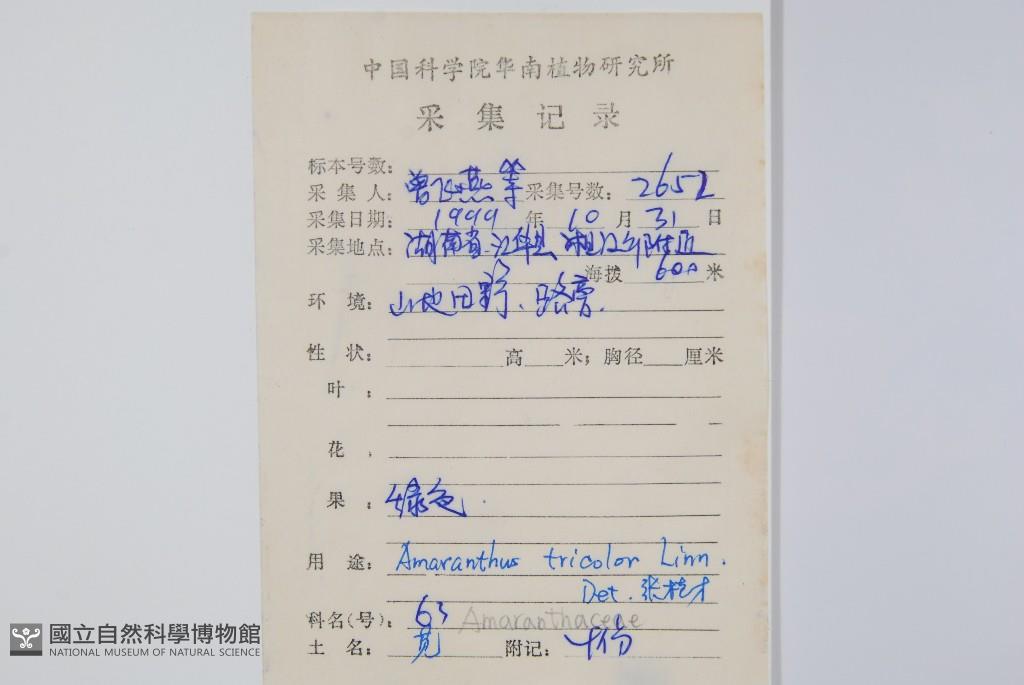 中国科学院华南植物研究所
采集记录
标本号数:
采集人: 曾飞燕等 采集号数: 2652
采集日期: 1999 年 10 月 31 日
采集地点: 湖南省江华县 湘江乡附近
海拨 600 米
环境: 山地田野、路旁.
性状: 高 米; 胸径 厘米
叶:
花.
果: 绿色.
用途: Amaranthus tricolor Linn.
Det. 张桂才
科名(号): 63 Amaranthaceae
土名: 苋 附记:
國立自然科學博物館
NATIONAL MUSEUM OF NATURAL SCIENCE